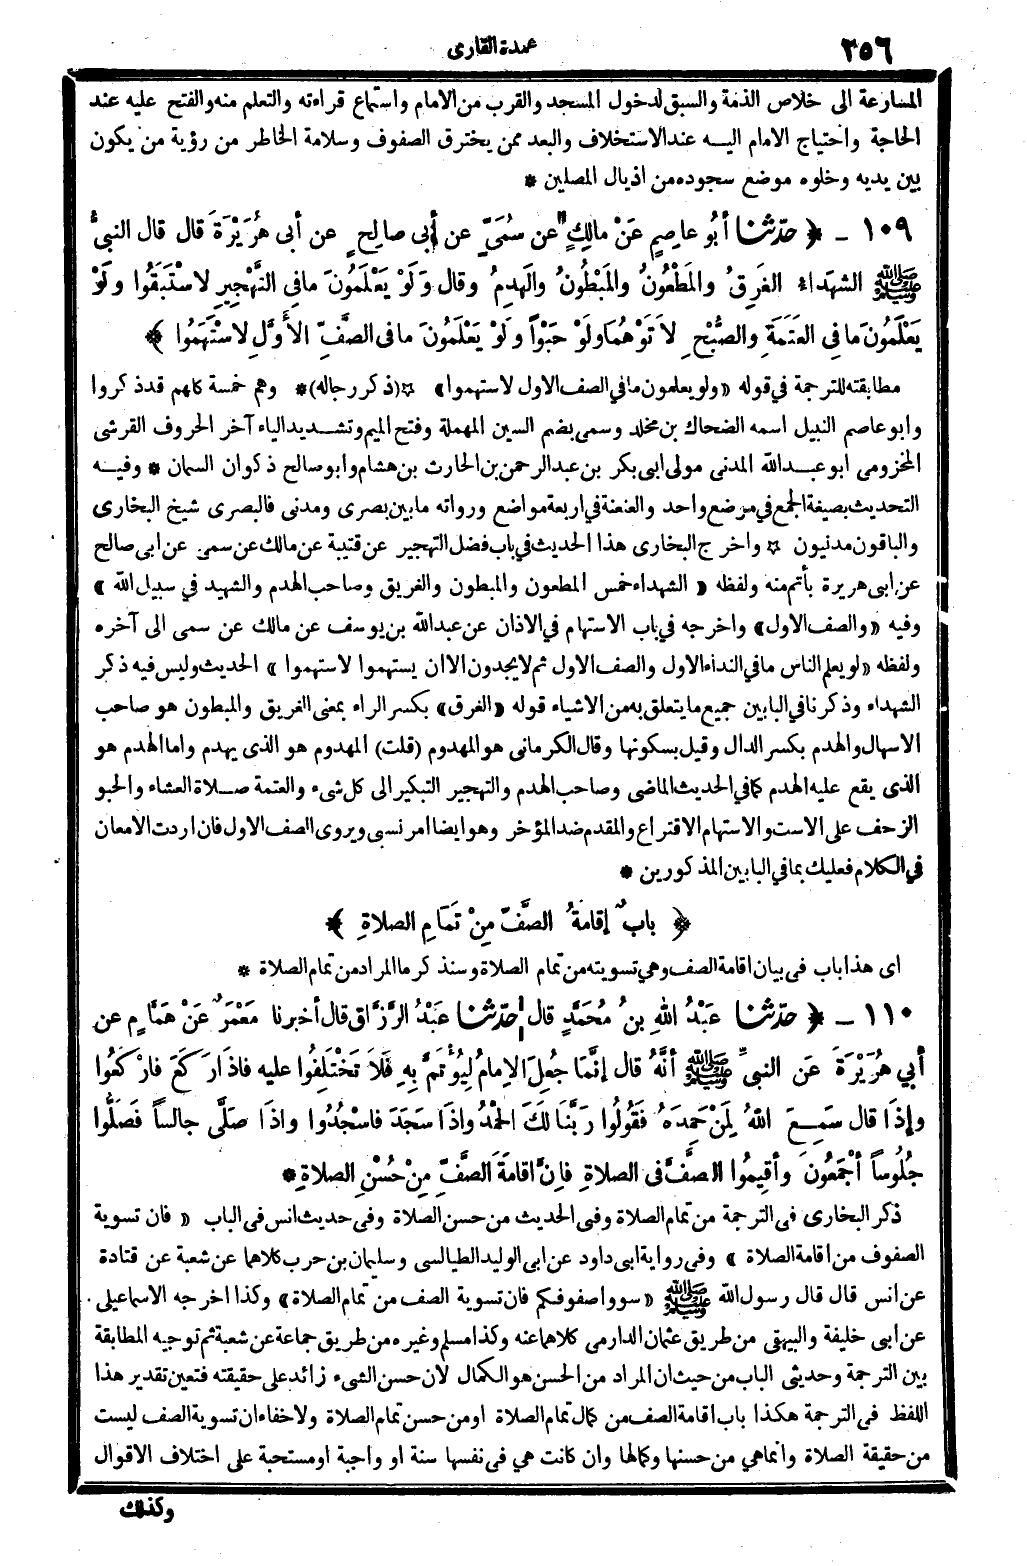 ٢٥٦
عمدة القارى
المسارعة الى خلاص الذمة والسبق لدخول المسجد والقرب من الامام واستماع قراءته والتعلم منه والفتح عليه عند
الحاجة واحتياج الامام اليه عند الاستخلاف والبعد ممن يخترق الصفوف وسلامة الخاطر من رؤية من يكون
بين يديه وخلوه موضع سجوده من اذيال المصلين *
١٠٩ ـ ﴿ حَدَّثَنا أبُو عاصِمٍ عَنْ مالِكٍ عَنْ سُمَيٍّ عن أبى صالِحٍ عن أبى هُرَيْرَةَ قال قال النبىُّ
ﷺ الشهداء الغَرِقُ والمَطْعُونُ والمَبْطُونُ والهَدِمُ وقال وَلَوْ يَعْلَمُونَ مافِى التَّهْجِيرِ لاسْتَبَقُوا ولَوْ
يَعْلَمُونَ ما فِى العَتَمَةِ والصُّبْحِ لأتَوْهُما ولَوْ حَبْواً ولَوْ يَعْلَمُونَ ما فى الصَّفِّ الأوَّلِ لاسْتَهَمُوا ﴾
مطابقته للترجمة فى قوله «ولو يعلمون ما فى الصف الاول لاستهموا» ☆(ذكر رجاله)* وهم خمسة كلهم قد ذكروا
وابو عاصم النبيل اسمه الضحاك بن مخلد وسمى بضم السين المهملة وفتح الميم وتشديد الياء آخر الحروف القرشى
المخزومى ابو عبد الله المدنى مولى ابى بكر بن عبد الرحمن بن الحارث بن هشام وابو صالح ذكوان السمان * وفيه
التحديث بصيغة الجمع فى موضع واحد والعنعنة فى اربعة مواضع ورواته ما بين بصرى ومدنى فالبصرى شيخ البخارى
والباقون مدنيون ☆ واخرج البخارى هذا الحديث فى باب فضل التهجير عن قتيبة عن مالك عن سمى عن ابى صالح
عن ابى هريرة بأتم منه ولفظه « الشهداء خمس المطعون والمبطون والغريق وصاحب الهدم والشهيد فى سبيل الله »
وفيه «والصف الاول» واخرجه فى باب الاستهام فى الاذان عن عبد الله بن يوسف عن مالك عن سمى الى آخره
ولفظه «لو يعلم الناس ما فى النداء الاول والصف الاول ثم لا يجدون الا ان يستهموا لاستهموا» الحديث وليس فيه ذكر
الشهداء وذكرنا فى البابين جميع ما يتعلق به من الاشياء قوله «الغرق» بكسر الراء بمعنى الغريق والمبطون هو صاحب
الاسهال والهدم بكسر الدال وقيل بسكونها وقال الكرمانى هو المهدوم (قلت) المهدوم هو الذى يهدم واما الهدم هو
الذى يقع عليه الهدم كما فى الحديث الماضى وصاحب الهدم والتهجير التبكير الى كل شىء والعتمة صلاة العشاء والحبو
الزحف على الاست والاستهام الاقتراع والمقدم ضد المؤخر وهو ايضا امر نسبى ويروى الصف الاول فان اردت الامعان
فى الكلام فعليك بما فى البابين المذكورين *
﴿ بابٌ إقامَةُ الصَّفِّ مِنْ تَمَامِ الصلاةِ ﴾
اى هذا باب فى بيان اقامة الصف وهى تسويته من تمام الصلاة وسنذكر ما المراد من تمام الصلاة *
١١٠ ـ ﴿ حَدَّثَنا عَبْدُ اللهِ بنُ مُحَمَّدٍ قال حدّثنا عَبْدُ الرَّزَّاقِ قال أخبرنا مَعْمَرٌ عَنْ هَمَّامٍ عن
أبي هُرَيْرَةَ عَن النبىِّ ﷺ أنَّهُ قال إنَّمَا جُعِلَ الإمامُ لِيُؤْتَمَّ بِهِ فَلاَ تَخْتَلِفُوا عليه فاذَا رَكَعَ فارْكَعُوا
وإذَا قال سَمِعَ اللهُ لِمَنْ حَمِدَهُ فَقُولُوا رَبَّنَا لَكَ الحَمْدُ واذَا سَجَدَ فاسْجُدُوا واذَا صَلَّى جالساً فَصَلُّوا
جُلُوساً أجْمَعُونَ وأقِيمُوا الصَّفَّ فى الصلاةِ فإنَّ اقامَةَ الصَّفِّ مِنْ حُسْنِ الصلاةِ *
ذكر البخارى فى الترجمة من تمام الصلاة وفى الحديث من حسن الصلاة وفى حديث انس فى الباب « فان تسوية
الصفوف من اقامة الصلاة » وفى رواية ابى داود عن ابى الوليد الطيالسى وسليمان بن حرب كلاهما عن شعبة عن قتادة
عن انس قال قال رسول الله ﷺ «سووا صفوفكم فان تسوية الصف من تمام الصلاة» وكذا اخرجه الاسماعيلى
عن ابى خليفة والبيهقى من طريق عثمان الدارمى كلاهما عنه وكذا مسلم وغيره من طريق جماعة عن شعبة ثم توجيه المطابقة
بين الترجمة وحديثى الباب من حيث ان المراد من الحسن هو الكمال لان حسن الشىء زائد على حقيقته فتعين تقدير هذا
اللفظ فى الترجمة هكذا باب اقامة الصف من كمال تمام الصلاة او من حسن تمام الصلاة ولا خفاء ان تسوية الصف ليست
من حقيقة الصلاة وانما هى من حسنها وكمالها وان كانت هى فى نفسها سنة او واجبة او مستحبة على اختلاف الاقوال
وكذلك